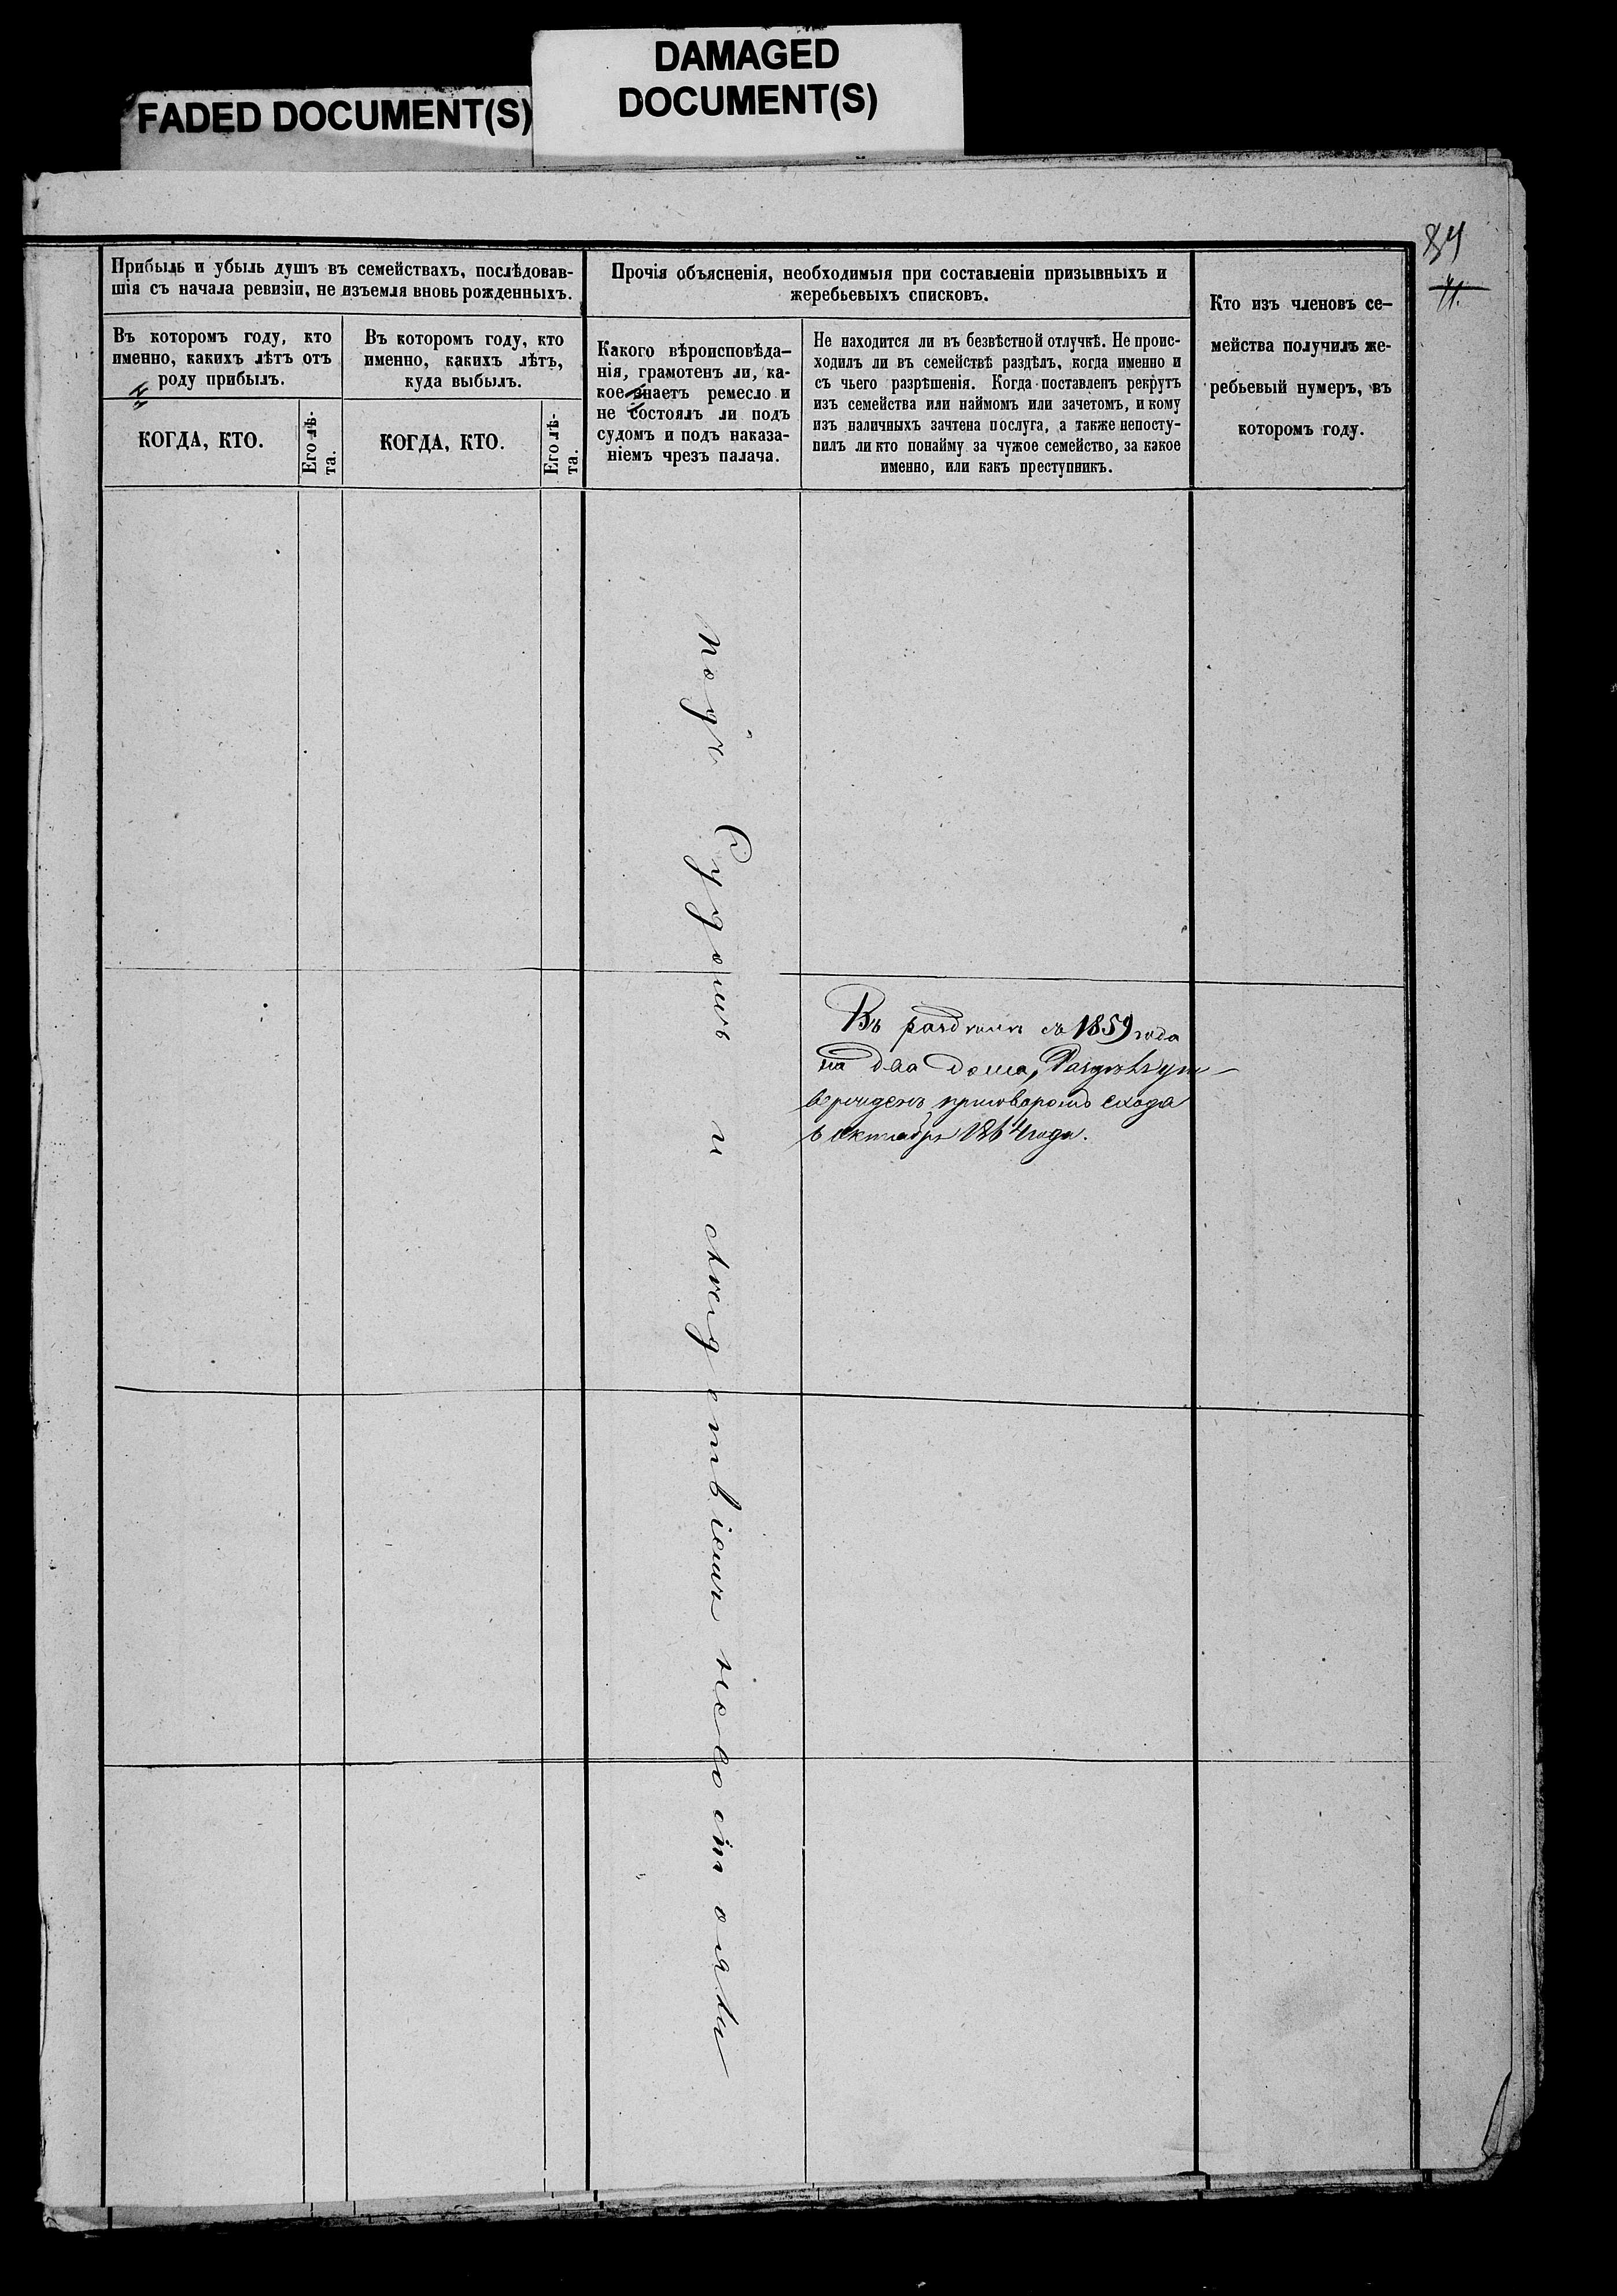 DAMAGED
DOCUMENT(S)
FADED DOCUMENT(S)
84
71.
Прибыль и убыль душъ въ семействахъ, послѣдовав-
шія съ начала ревизіи, не изъемля вновь рожденныхъ.
Въ которомъ году, кто
именно, какихъ лѣтъ отъ
роду прибылъ.
КОГДА, КТО.
Его лѣ-
та.
Въ которомъ году, кто
именно, какихъ лѣтъ,
куда выбылъ.
КОГДА, КТО.
Его лѣ-
та.
Прочія объясненія, необходимыя при составленіи призывныхъ и
жеребьевыхъ списковъ.
Какого вѣроисповѣда-
нія, грамотенъ ли, ка-
кое знаетъ ремесло и
не состоялъ ли подъ
судомъ и подъ наказа-
ніемъ чрезъ палача.
Не находится ли въ безвѣстной отлучкѣ. Не проис-
ходилъ ли въ семействѣ раздѣлъ, когда именно и
съ чьего разрѣшенія. Когда поставленъ рекрутъ
изъ семейства или наймомъ или зачетомъ, и кому
изъ наличныхъ зачтена послуга, а также непосту-
пилъ ли кто понайму за чужое семейство, за какое
именно, или какъ преступникъ.
Кто изъ членовъ се-
мейства получилъ же-
ребьевый нумеръ, въ
которомъ году.
подъ Судомъ и следствіемъ несостояли
Въ раздѣлѣ съ 1859 года
на два дома, Раздѣлъ ут-
вержденъ приговоромъ схода
6 октября 1864 года.